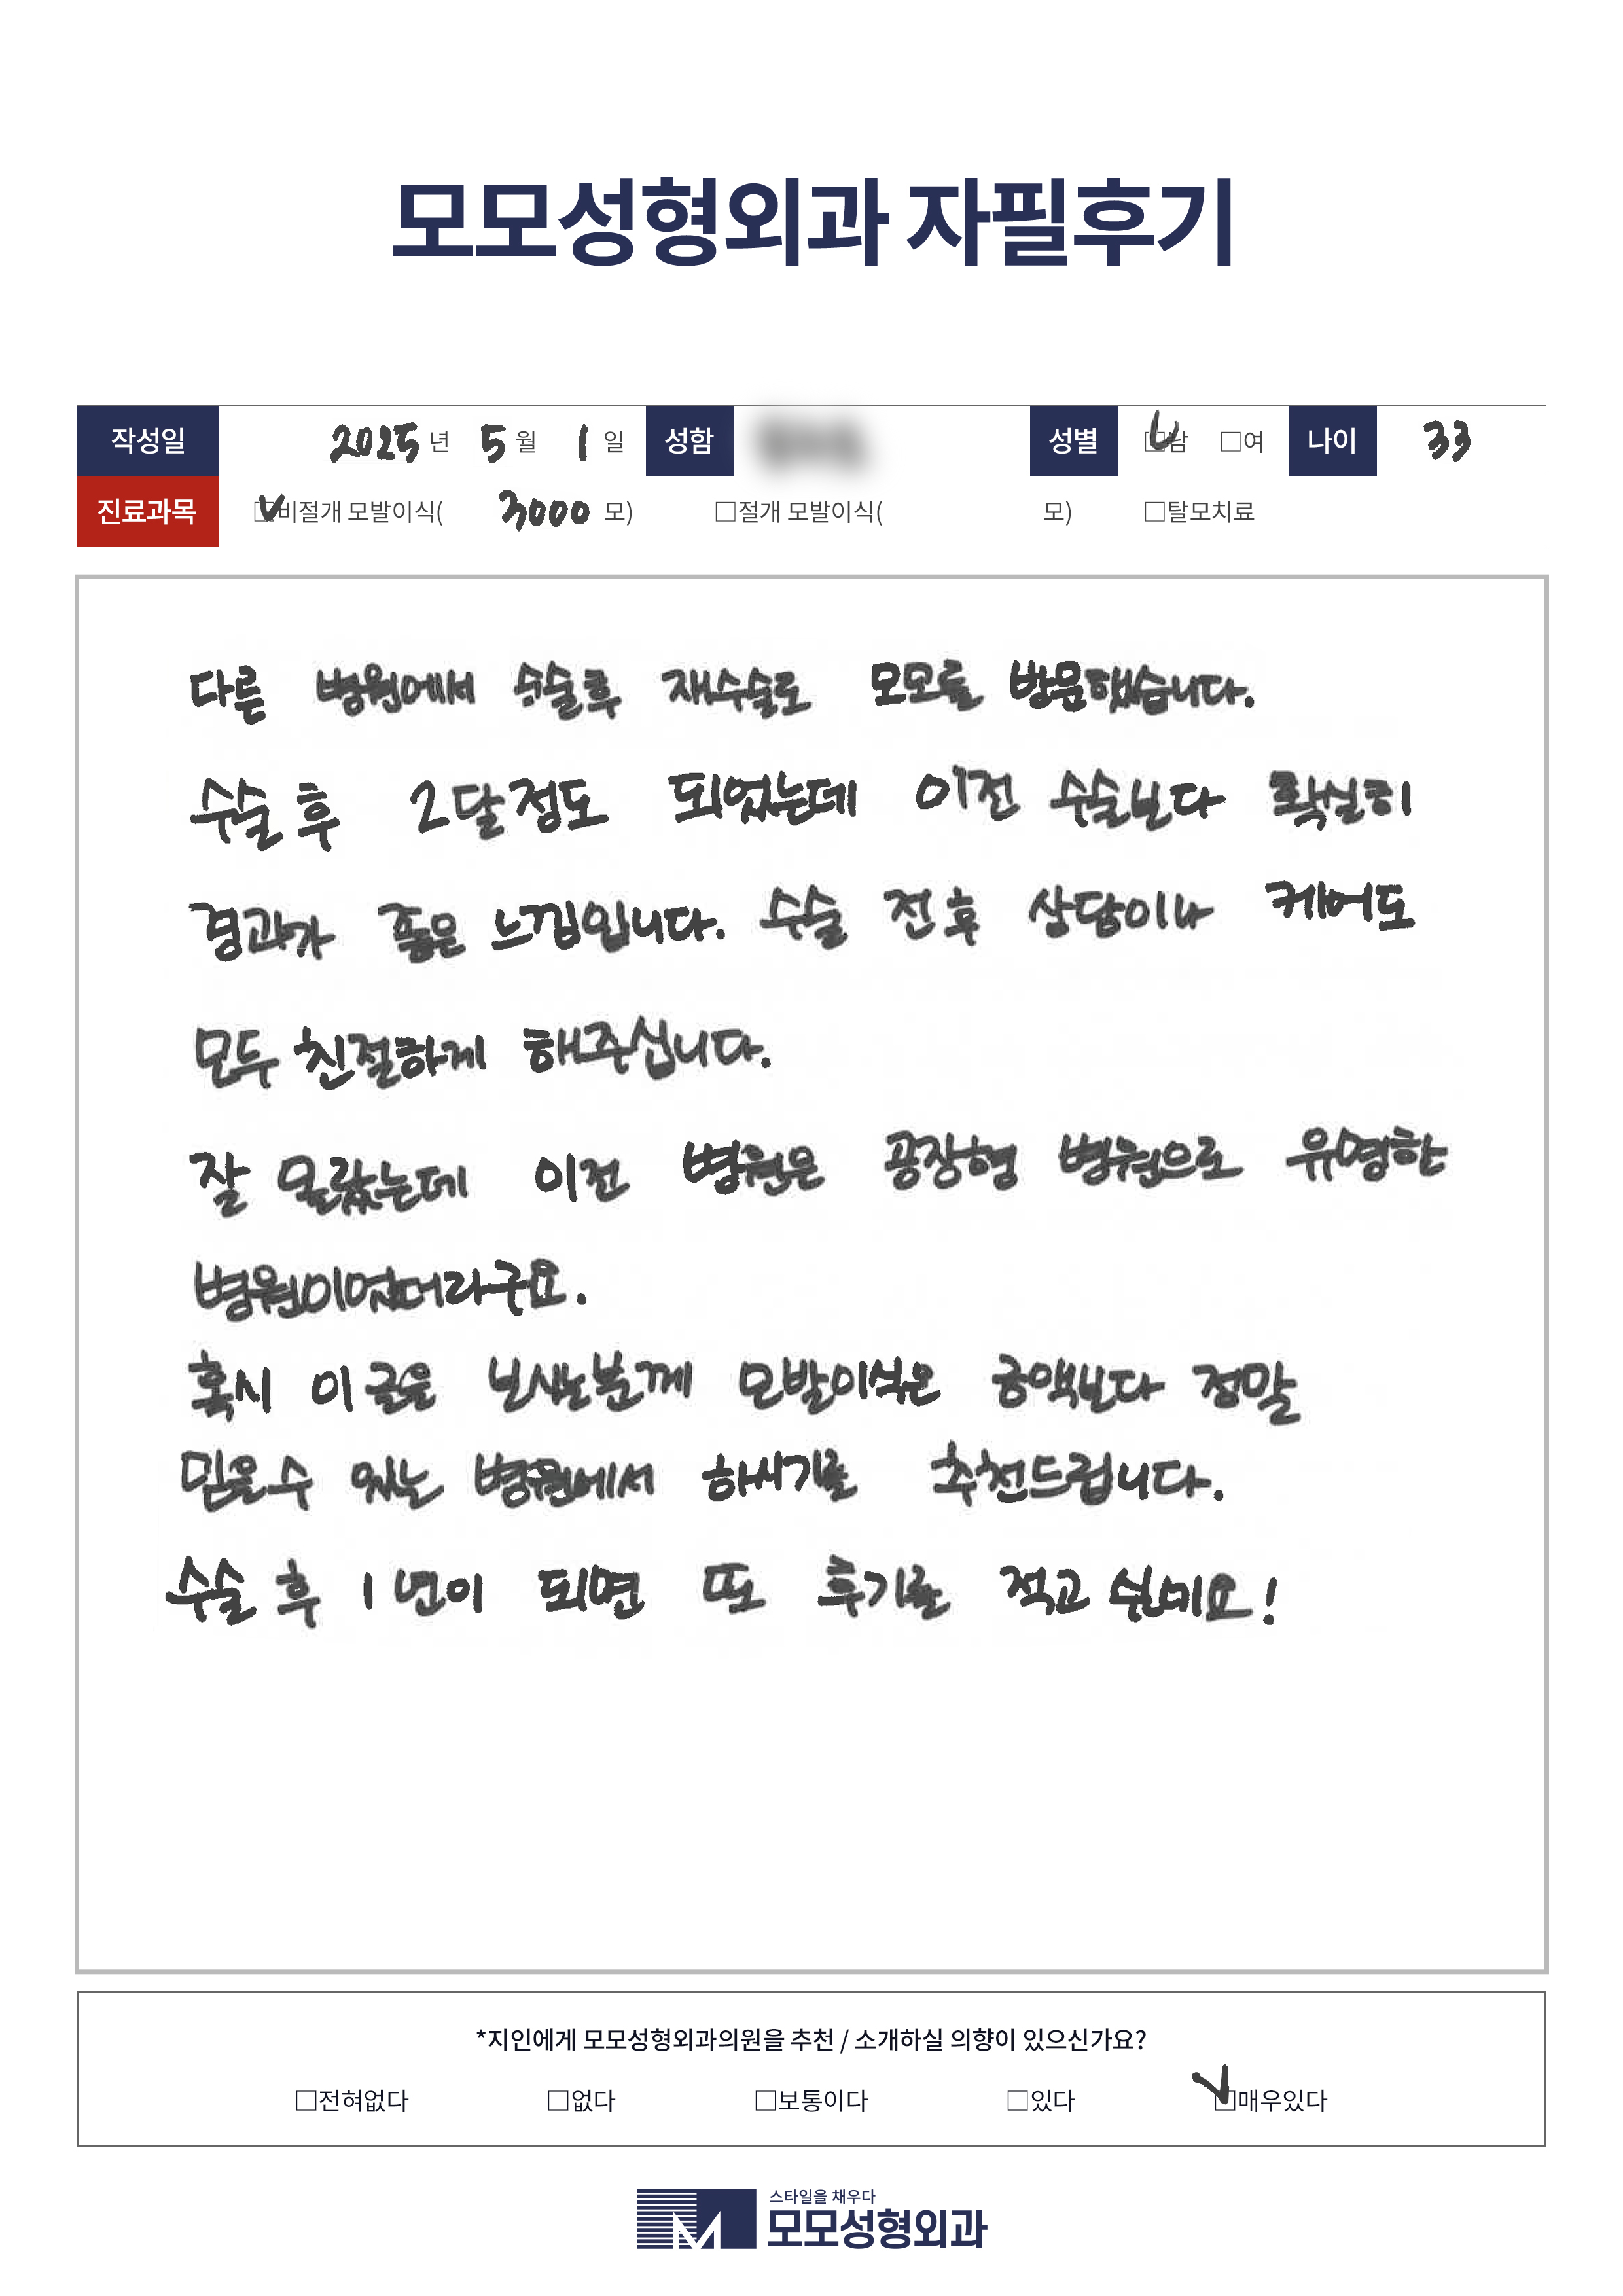 모모성형외과 자필후기
작성일 2025년 5월 1일 성함 성별 ☑남 □여 나이 33
진료과목 ☑비절개 모발이식( 3000 모) □절개 모발이식( 모) □탈모치료
다른 병원에서 수술후 재수술로 모모를 방문했습니다.
수술 후 2달정도 되었는데 이전 수술보다 확실히
경과가 좋은 느낌입니다. 수술 전후 상담이나 케어도
모두 친절하게 해주십니다.
잘 몰랐는데 이전 병원은 공장형 병원으로 유명한
병원이었더라구요.
혹시 이글을 보시는분께 모발이식은 금액보다 정말
믿을수 있는 병원에서 하시기를 추천드립니다.
수술 후 1년이 되면 또 후기를 적고 싶네요!
*지인에게 모모성형외과의원을 추천 / 소개하실 의향이 있으신가요?
□전혀없다 □없다 □보통이다 □있다 ☑매우있다
스타일을 채우다
모모성형외과